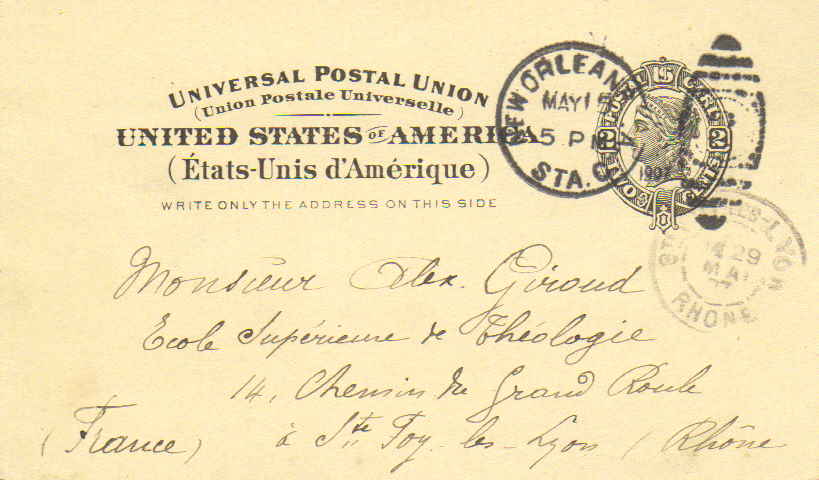 UNIVERSAL POSTAL UNION
(Union Postale Universelle)
UNITED STATES OF AMERICA
(États-Unis d'Amérique)
WRITE ONLY THE ADDRESS ON THIS SIDE
NEW ORLEANS LA
MAY 15
5 PM
1907
STA. C
POSTAL CARD
2 TWO CENTS 2
LYON
29
MAI
07
RHONE
Monsieur Alex. Giroud
Ecole Supérieure de Théologie
14, Chemin du Grand Roule
à Ste Foy-les-Lyon (Rhône
(France)